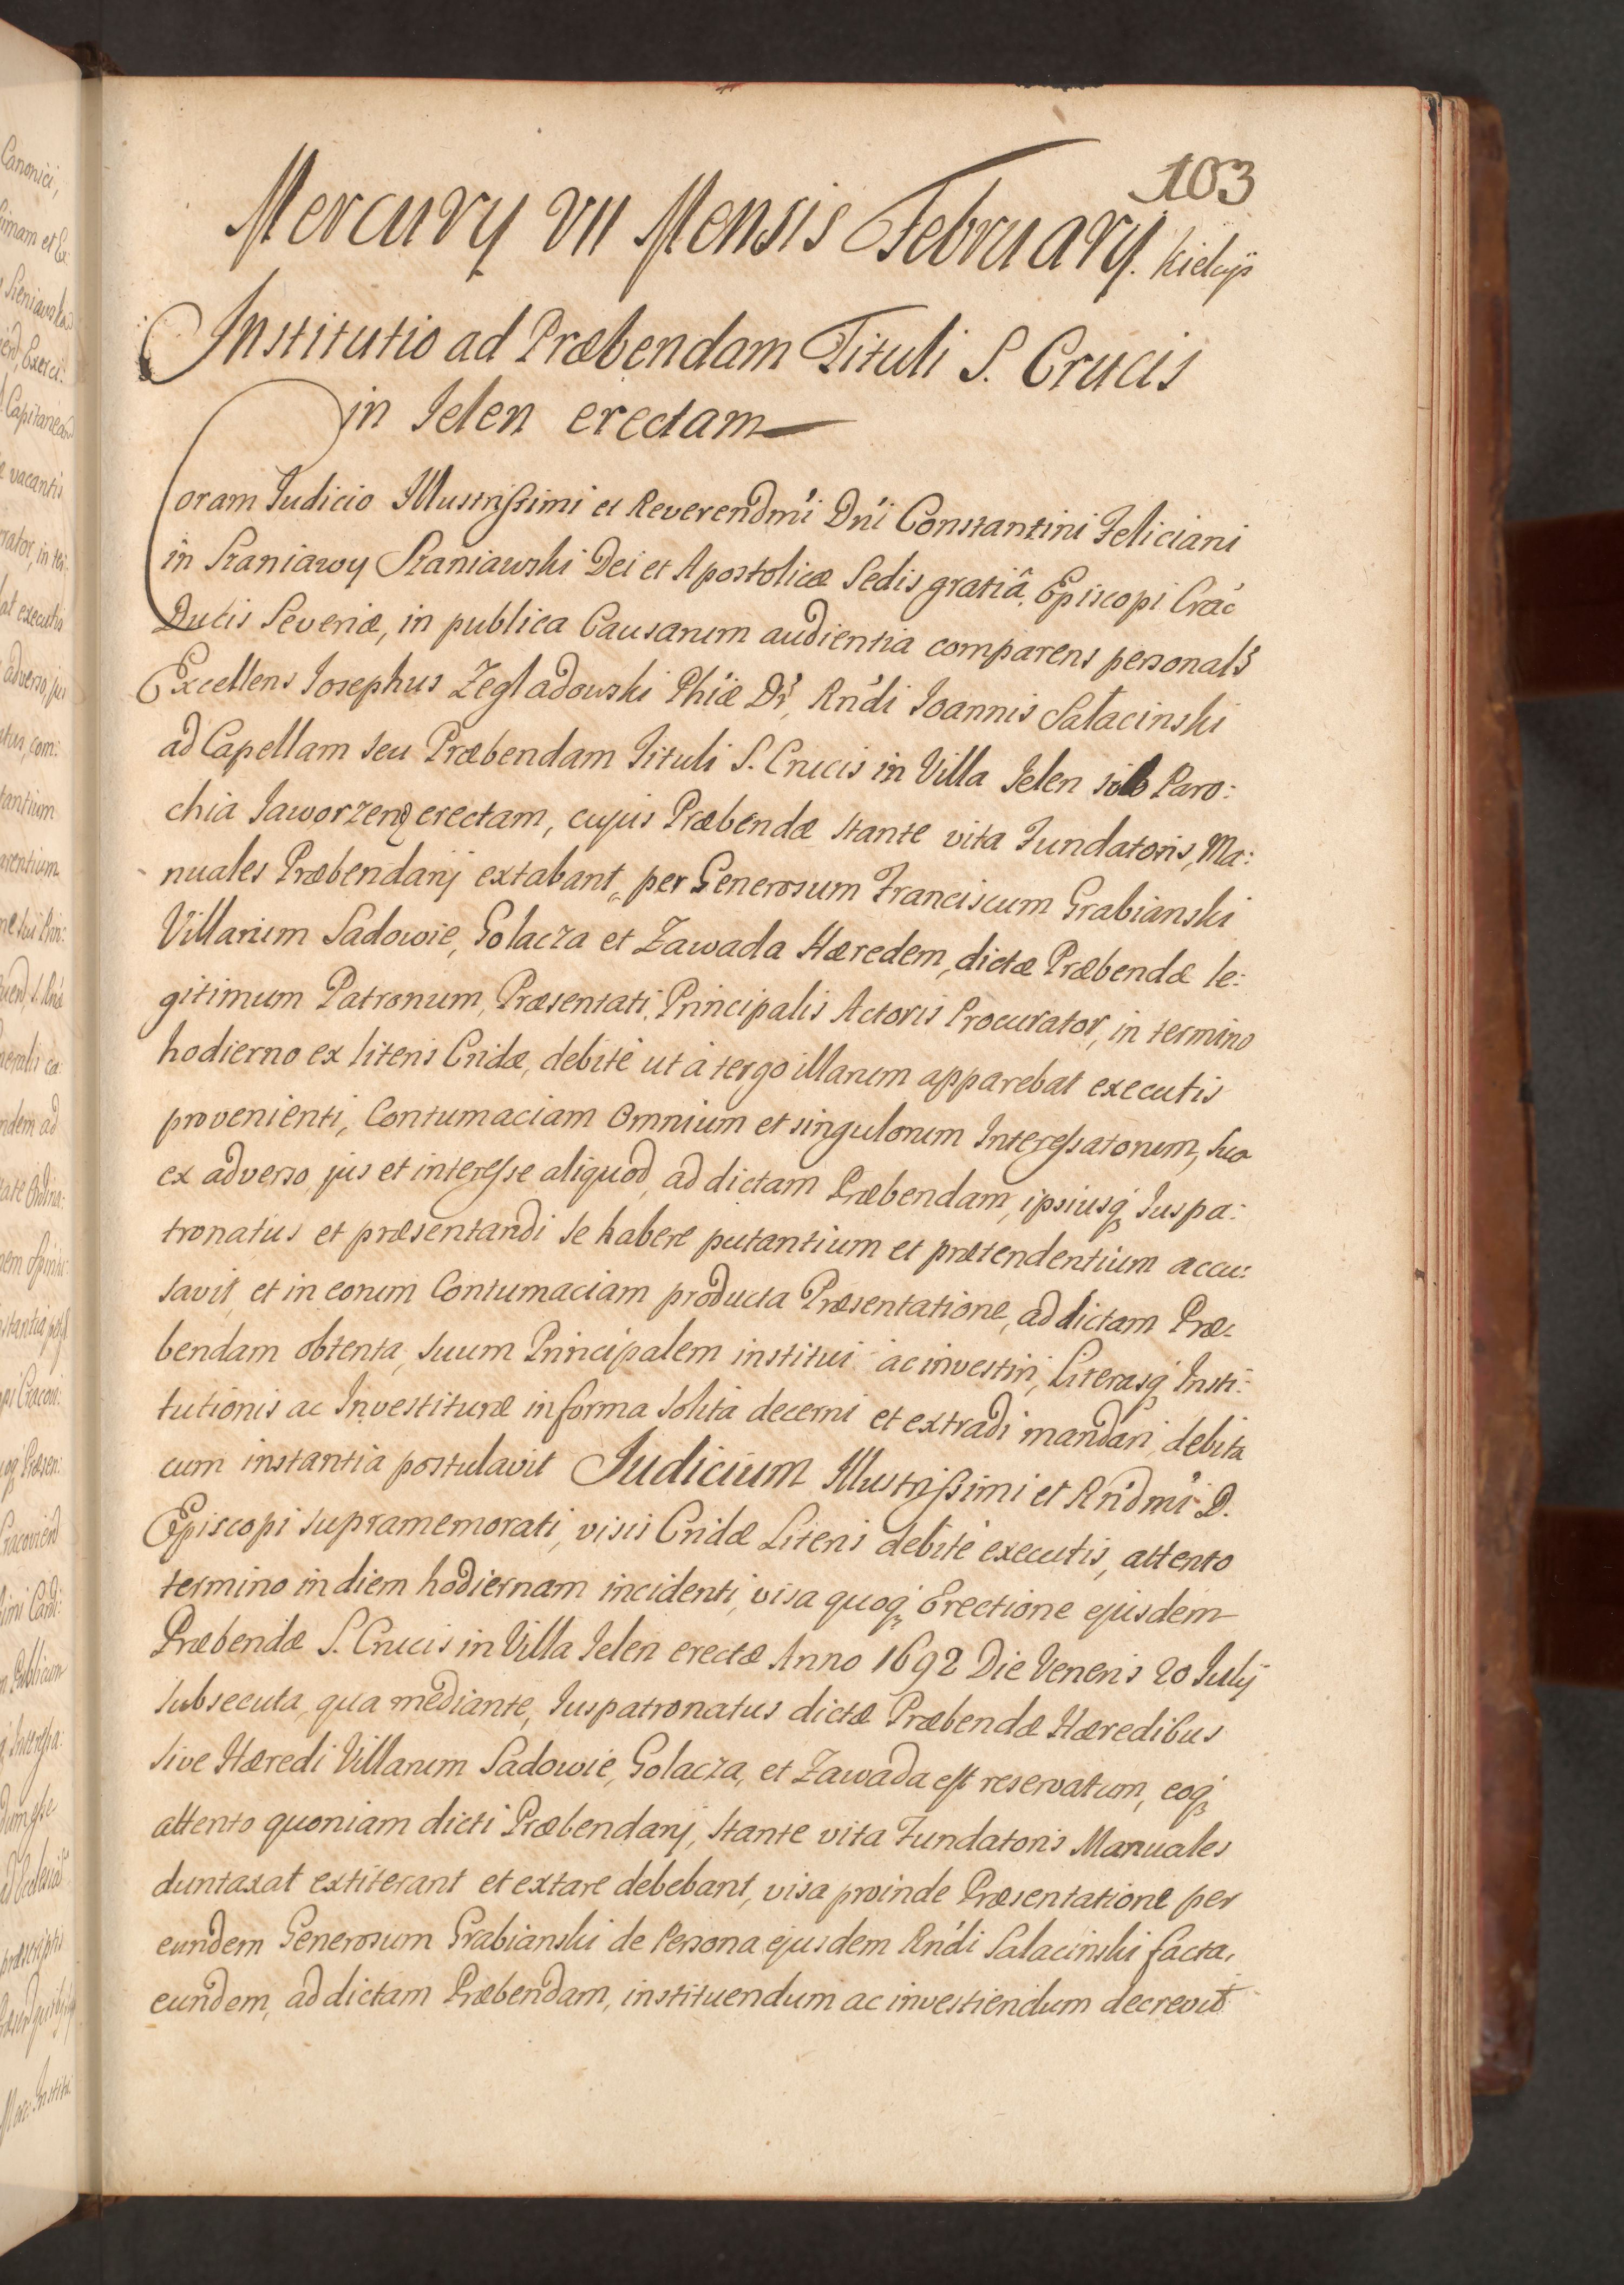 103
Mercurÿ VII Mensis Februarÿ. Kielcijs
Institutio ad Præbendam Tituli S. Crucis
in Jelen erectam
Coram Judicio Illustrissimi et Reverendmi Dni Constantini Feliciani
in Szaniawy Szaniawski Dei et Apostolicæ Sedis gratiâ Episcopi Crac
Ducis Severiæ, in publica Causarum audientia comparens personals
Excellens Josephus Zegladowski Phiæ Dr, Rndi Joannis Salacinski
ad Capellam seu Præbendam Tituli S. Crucis in Villa Jelen sub Paro:
chia Jaworzen erectam, cujus Præbendæ stante vita Fundatoris, Ma:
nuales Præbendarij extabant, per Generosum Franciscum Grabianski
Villarum Sadowie, Golacza et Zawada Hæredem, dictæ Præbendæ le:
gitimum Patronum, Præsentati, Principalis Actoris Procurator, in termino
hodierno ex literis Cridæ, debitè ut à tergo illarum apparebat executis
provenienti, Contumaciam Omnium et singulorum Interessatorum, sua
ex adverso jus et interesse aliquod, ad dictam Præbendam, ipsiusq Juspa:
tronatus et præsentandi se habere putantium et prætendentium accu:
savit, et in eorum Contumaciam producta Præsentatione, ad dictam Præ:
bendam obtenta, suum Principalem institui ac investiri, Literasq Insti:
tutionis ac Investituræ in forma solita decerni et extradi mandari, debita
cum instantia postulavit Judicium Illustrissimi et Rndmi D.
Episcopi supramemorati, visis Cridæ Literis debitè executis, attento
termino in diem hodiernam incidenti, visa quoq Erectione ejusdem
Præbendæ S. Crucis in Villa Jelen erectæ Anno 1692 Die Veneris 20 Julij
subsecuta, qua mediante, Juspatronatus dictæ Præbendæ Hæredibus
sive Hæredi Villarum Sadowie, Golacza, et Zawada est reservatum, eoq
attento quoniam dicti Præbendarij, stante vita Fundatoris Manuales
duntaxat extiterant et extare debebant, visa proinde Præsentatione per
eundem Generosum Grabianski de Persona ejusdem Rndi Salacinski facta,
eundem, ad dictam Præbendam, instituendum ac investiendum decrevit